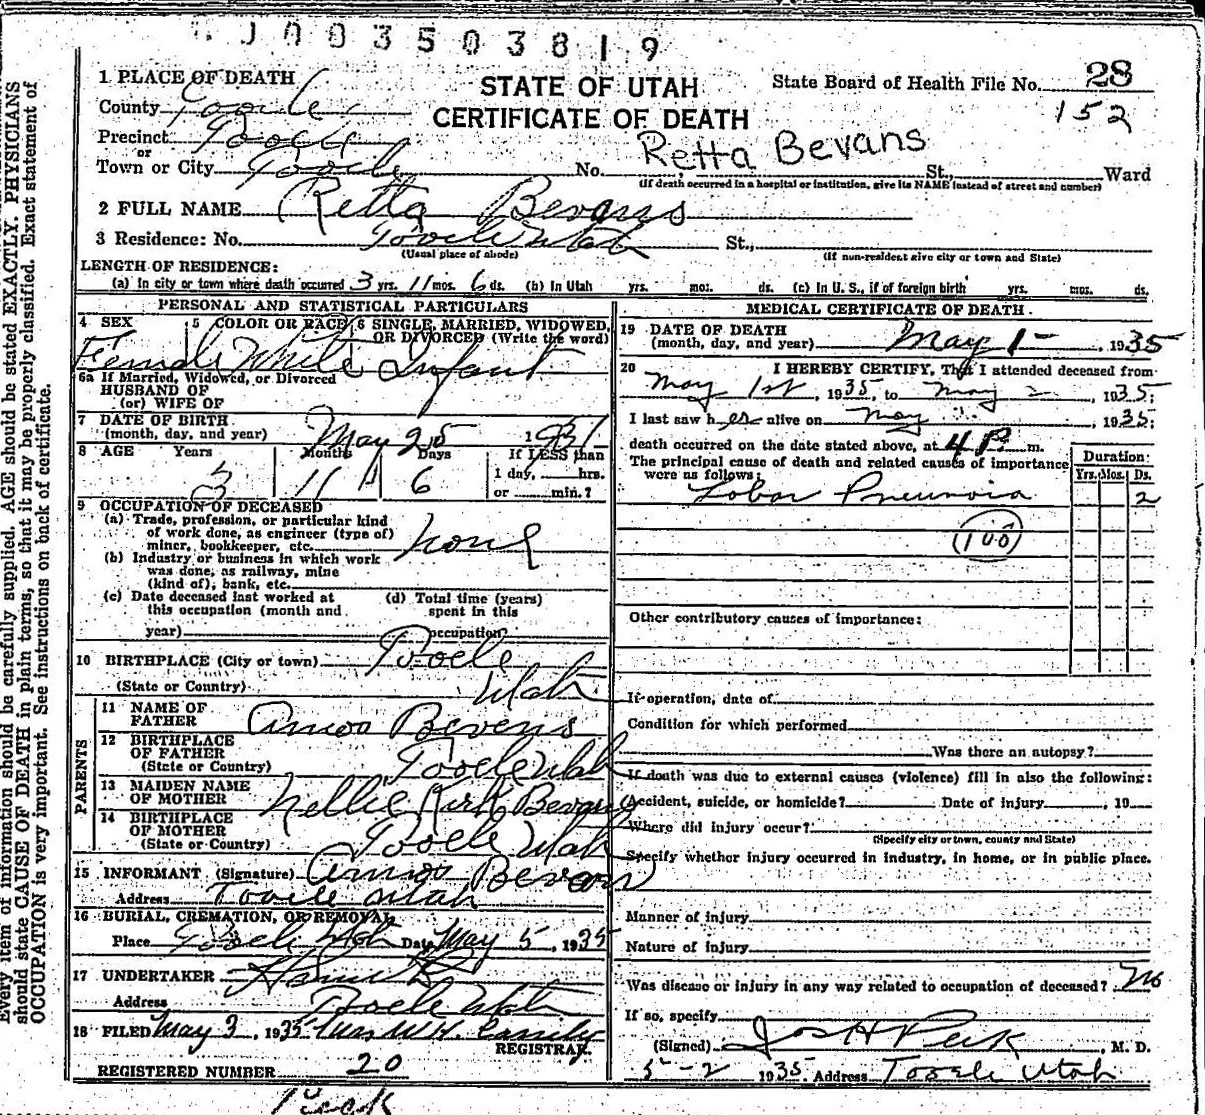 0083503819
1 PLACE OF DEATH
STATE OF UTAH
CERTIFICATE OF DEATH
State Board of Health File No. 28
152
County Tooele
Precinct Tooele
or
Town or City Tooele No. Retta Bevans St., Ward
(If death occurred in a hospital or institution, give its NAME instead of street and number)
2 FULL NAME Retta Bevans
3 Residence: No. Tooele Utah St.,
(Usual place of abode) (If non-resident give city or town and State)
LENGTH OF RESIDENCE:
(a) In city or town where death occurred 3 yrs. 11 mos. 6 ds. (b) In Utah yrs. mos. ds. (c) In U. S., if of foreign birth yrs. mos. ds.
PERSONAL AND STATISTICAL PARTICULARS
4 SEX 5 COLOR OR RACE 6 SINGLE, MARRIED, WIDOWED, OR DIVORCED (Write the word)
Female White Infant
6a If Married, Widowed, or Divorced
HUSBAND OF
(or) WIFE OF
7 DATE OF BIRTH
(month, day, and year) May 25 1931
8 AGE Years Months Days If LESS than
3 11 6 1 day, hrs.
or min.?
9 OCCUPATION OF DECEASED
(a) Trade, profession, or particular kind
of work done, as engineer (type of)
miner, bookkeeper, etc. none
(b) Industry or business in which work
was done, as railway, mine
(kind of), bank, etc.
(c) Date deceased last worked at
this occupation (month and
year)
(d) Total time (years)
spent in this
occupation?
10 BIRTHPLACE (City or town) Tooele
(State or Country) Utah
PARENTS
11 NAME OF
FATHER Amos Bevens
12 BIRTHPLACE
OF FATHER
(State or Country) Tooele Utah
13 MAIDEN NAME
OF MOTHER Nellie Kirk Bevans
14 BIRTHPLACE
OF MOTHER
(State or Country) Tooele Utah
15 INFORMANT (Signature) Amos Bevan
Address Tooele Utah
16 BURIAL, CREMATION, OR REMOVAL
Place Tooele Utah Date May 5, 1935
17 UNDERTAKER
Address Tooele Utah
18 FILED May 3, 1935 Mrs W. H. Cassity
REGISTRAR
REGISTERED NUMBER 20
Peck
MEDICAL CERTIFICATE OF DEATH
19 DATE OF DEATH
(month, day, and year) May 1- , 1935
20 I HEREBY CERTIFY, That I attended deceased from
May 1st, 1935, to May 2, 1935;
I last saw her alive on May , 1935;
death occurred on the date stated above, at 4 P. m.
The principal cause of death and related causes of importance
were as follows:
Duration:
Yrs. Mos. Ds.
Lobar Pneumonia 2
Other contributory causes of importance:
If operation, date of
Condition for which performed
Was there an autopsy?
If death was due to external causes (violence) fill in also the following:
Accident, suicide, or homicide? Date of injury , 19
Where did injury occur?
(Specify city or town, county and State)
Specify whether injury occurred in industry, in home, or in public place.
Manner of injury
Nature of injury
Was disease or injury in any way related to occupation of deceased? No
If so, specify
(Signed) Jos H Peck , M. D.
5-2 1935 Address Tooele Utah
Every item of information should be carefully supplied. AGE should be stated EXACTLY. PHYSICIANS
should state CAUSE OF DEATH in plain terms, so that it may be properly classified. Exact statement of
OCCUPATION is very important. See instructions on back of certificate.